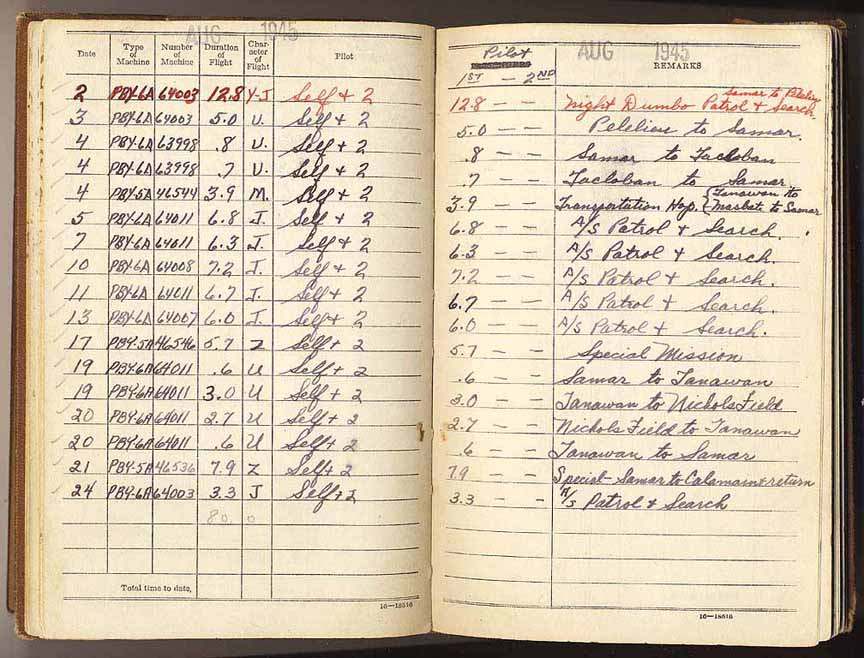 AUG 1945
Date Type of Machine Number of Machine Duration of Flight Char- acter of Flight Pilot
2 PBY-6A 64003 12.8 Y-J Self + 2
3 PBY-6A 64003 5.0 U. Self + 2
4 PBY-6A 63998 .8 U. Self + 2
4 PBY-6A 63998 .7 U. Self + 2
4 PBY-5A 46544 3.9 M. Self + 2
5 PBY-6A 64011 6.8 J. Self + 2
7 PBY-6A 64011 6.3 J. Self + 2
10 PBY-6A 64008 7.2 J. Self + 2
11 PBY-6A 64011 6.7 J. Self + 2
13 PBY-6A 64007 6.0 J. Self + 2
17 PBY-5A 46546 5.7 Z Self + 2
19 PBY-6A 64011 .6 U Self + 2
19 PBY-6A 64011 3.0 U Self + 2
20 PBY-6A 64011 2.7 U Self + 2
20 PBY-6A 64011 .6 U Self + 2
21 PBY-5A 46536 7.9 Z Self + 2
24 PBY-6A 64003 3.3 J Self + 2
80.0
Total time to date,
16—18516
AUG 1945
Pilot
1ST - 2ND REMARKS
Samar to Peleliu
12.8 - - Night Dumbo Patrol + Search.
5.0 - - Peleliu to Samar.
.8 - - Samar to Tacloban
.7 - - Tacloban to Samar
3.9 - - Transportation Hop. { Tanawan to
Masbate to Samar
6.8 - - A/S Patrol + Search.
6.3 - - A/S Patrol + Search.
7.2 - - A/S Patrol + Search.
6.7 - - A/S Patrol + Search.
6.0 - - A/S Patrol + Search.
5.7 - - Special Mission
.6 - - Samar to Tanawan
3.0 - - Tanawan to Nichols Field
2.7 - - Nichols Field to Tanawan
.6 - - Tanawan to Samar
7.9 - - Special - Samar to + return
3.3 - - A/S Patrol + Search
16—18516